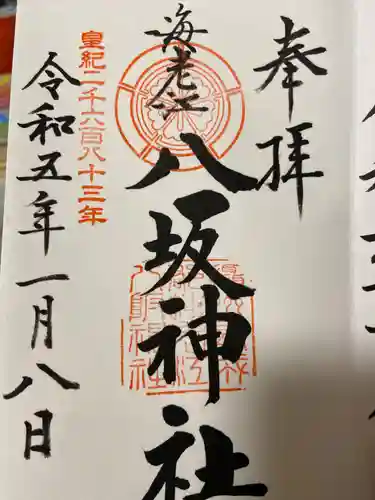 奉拝
海老江
八坂神社
皇紀二千六百八十三年
令和五年一月八日